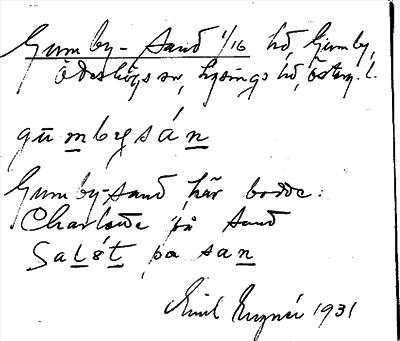 Gumby-Sand 1/16 hd, Gumby,
Ödeshögs sn, Lysings hd, Österg. l.
gūmbysán
Gumby-sand här bodde:
Charlotte på Sand
Salót pa san
Emil 1931